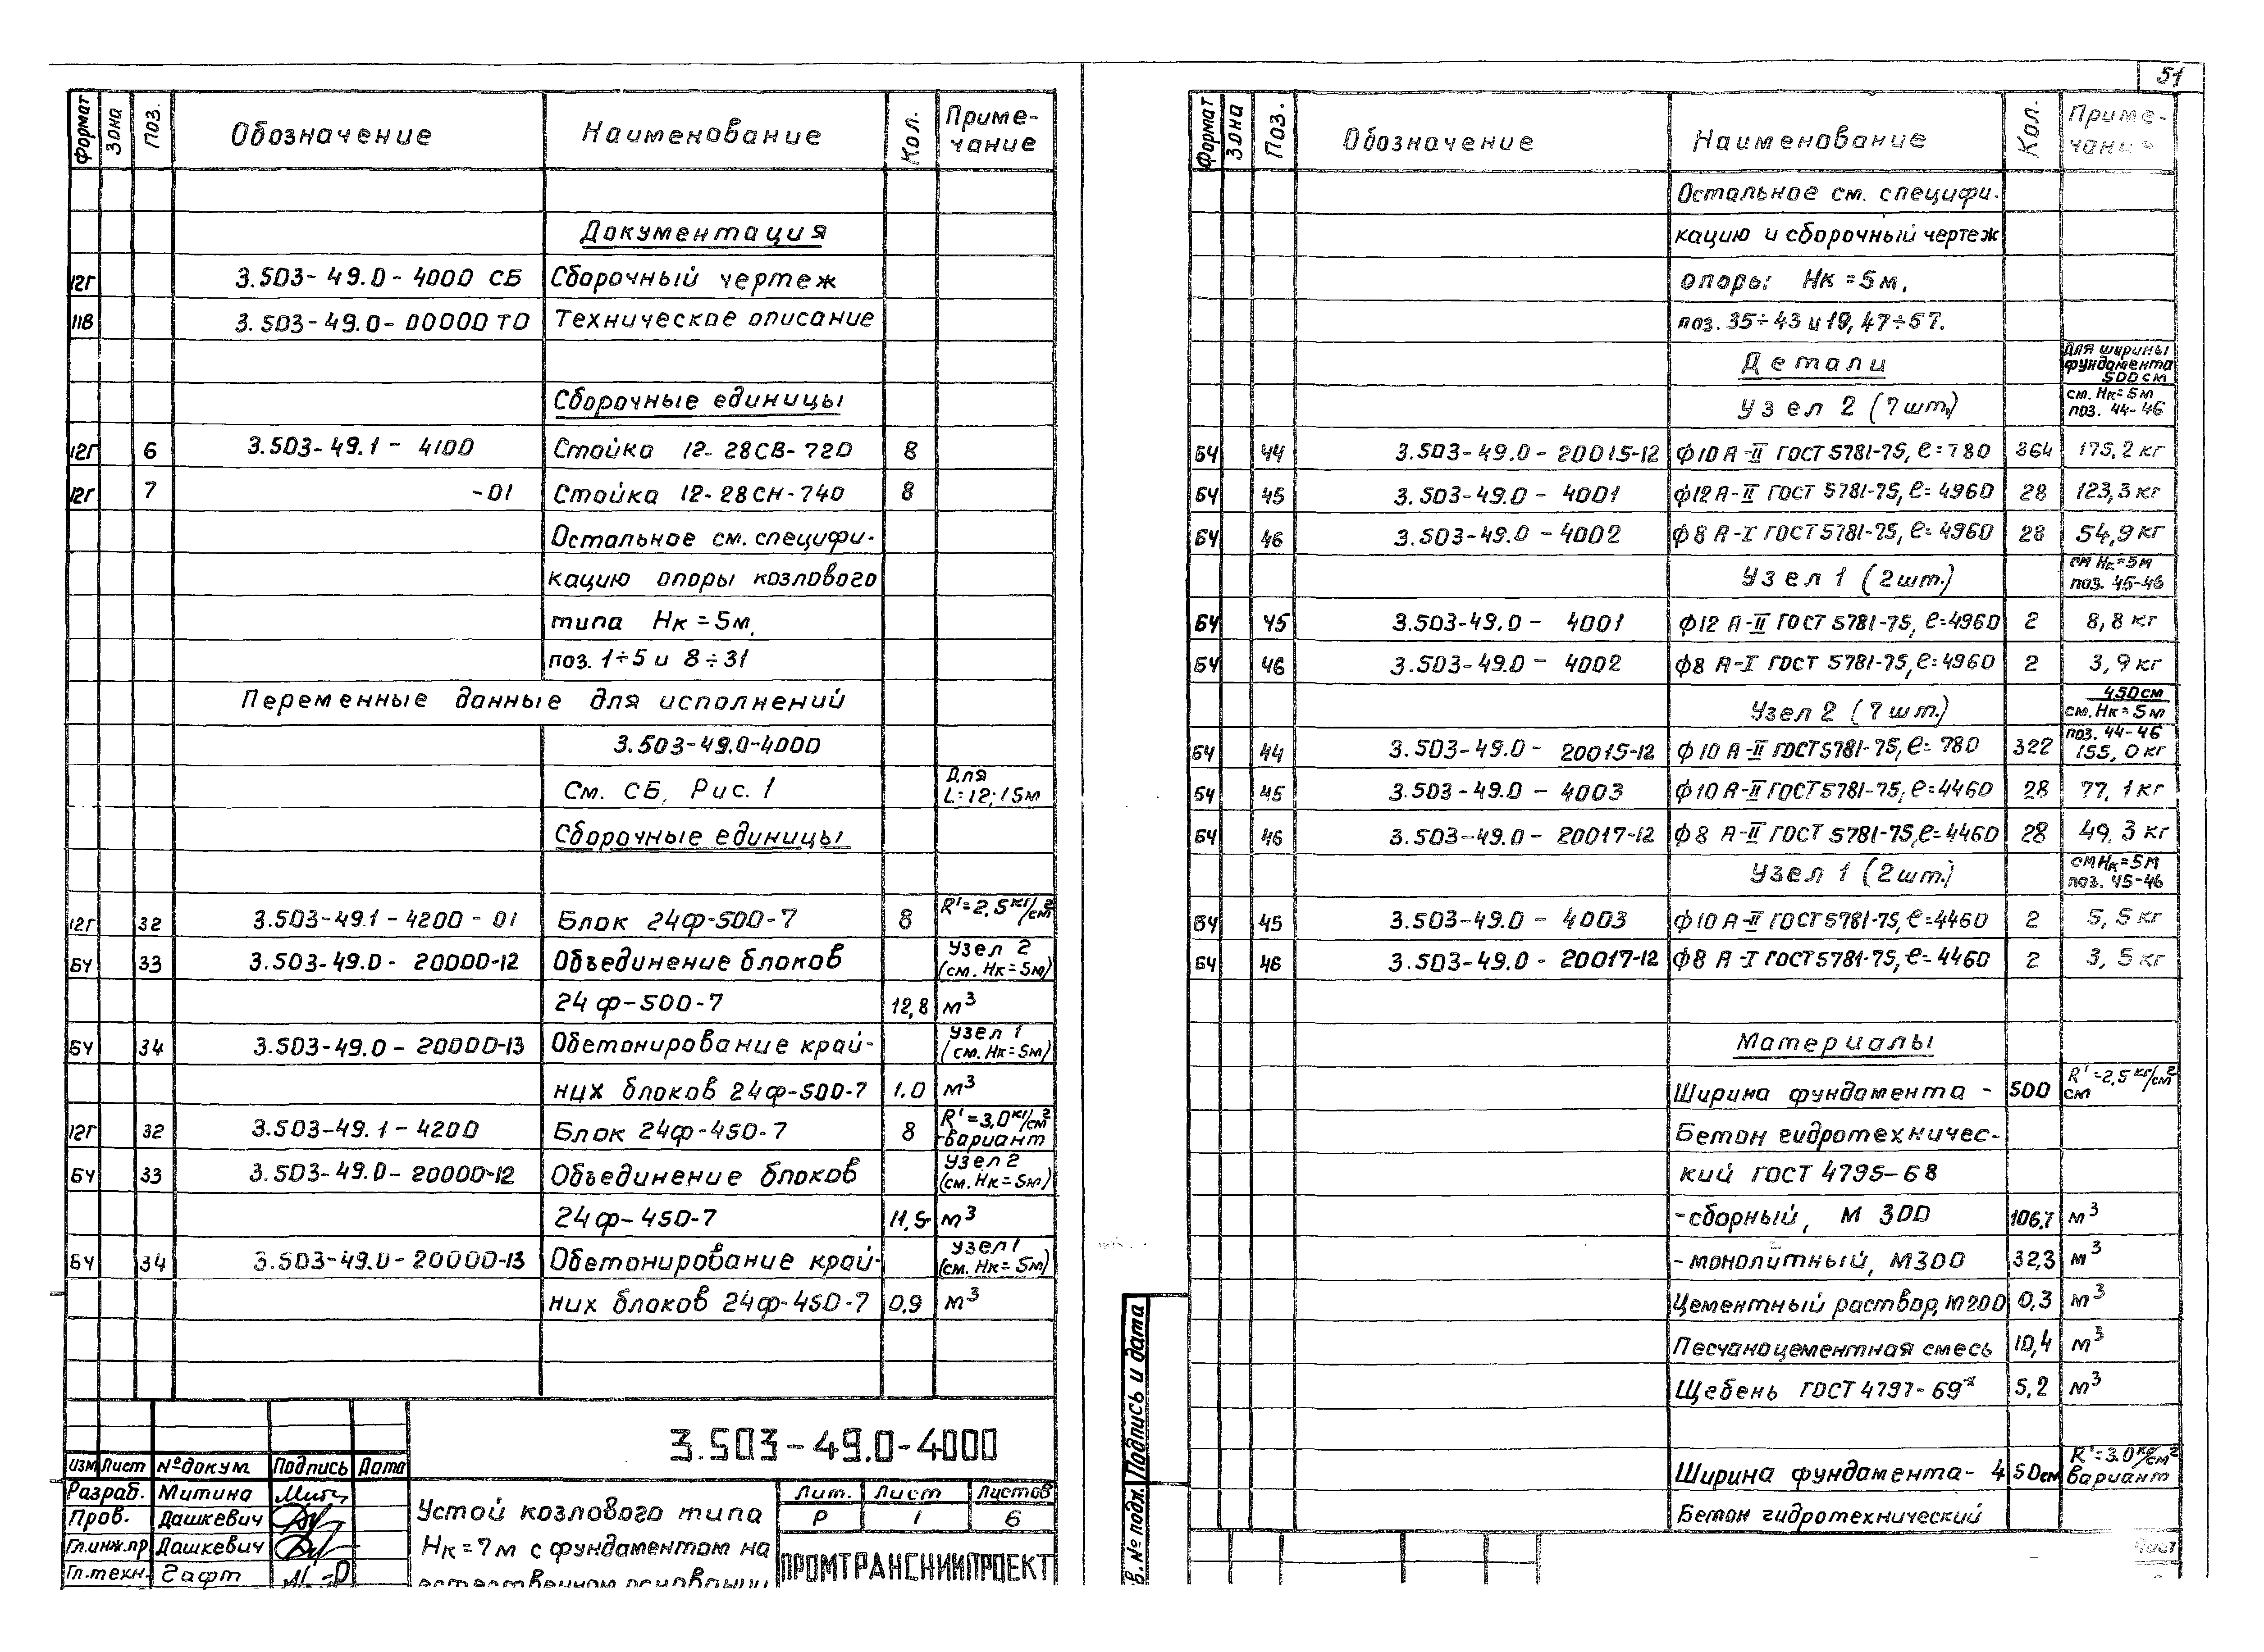 51
Формат Зона Поз. Обозначение Наименование Кол. Приме-
чание
Документация
12Г 3.503-49.0-4000 СБ Сборочный чертеж
11В 3.503-49.0-00000 ТО Техническое описание
Сборочные единицы
12Г 6 3.503-49.1-4100 Стойка 12-28СВ-720 8
12Г 7 -01 Стойка 12-28СН-740 8
Остальное см. специфи-
кацию опоры козлового
типа Нк=5м.
поз. 1÷5 и 8÷31
Переменные данные для исполнений
3.503-49.0-4000
См. СБ, Рис. 1 Для
L=12;15м
Сборочные единицы
12Г 32 3.503-49.1-4200-01 Блок 24ф-500-7 8 R'=2,5 кг/см²
БЧ 33 3.503-49.0-20000-12 Объединение блоков Узел 2
(см. Нк=5м)
24ф-500-7 12,8 м³
БЧ 34 3.503-49.0-20000-13 Обетонирование край- Узел 1
(см. Нк=5м)
них блоков 24ф-500-7 1.0 м³
12Г 32 3.503-49.1-4200 Блок 24ф-450-7 8 R'=3,0 кг/см²
вариант
БЧ 33 3.503-49.0-20000-12 Объединение блоков Узел 2
(см. Нк=5м)
24ф-450-7 11,5 м³
БЧ 34 3.503-49.0-20000-13 Обетонирование край- Узел 1
(см. Нк=5м)
них блоков 24ф-450-7 0,9 м³
3.503-49.0-4000
Изм Лист №докум. Подпись Дата
Разраб. Митина
Пров. Дашкевич
Гл.инж.пр Дашкевич
Гл.техн. Гафт
Устой козлового типа
Нк=7м с фундаментом на
естественном основании
Лит. Лист Листов
Р 1 6
ПРОМТРАНСНИИПРОЕКТ
Формат Зона Поз. Обозначение Наименование Кол. Приме-
чание
Остальное см. специфи-
кацию и сборочный чертеж
опоры: Нк=5м,
поз. 35÷43 и 19, 47÷57.
Детали Для ширины
фундамента
500 см
Узел 2 (7шт.) см. Нк=5м
поз. 44-46
БЧ 44 3.503-49.0-20015-12 ф10 А-II ГОСТ 5781-75, ℓ=780 364 175,2 кг
БЧ 45 3.503-49.0-4001 ф12 А-II ГОСТ 5781-75, ℓ=4960 28 123,3 кг
БЧ 46 3.503-49.0-4002 ф8 А-I ГОСТ 5781-75, ℓ=4960 28 54,9 кг
Узел 1 (2шт.) см Нк=5м
поз. 45-46
БЧ 45 3.503-49.0-4001 ф12 А-II ГОСТ 5781-75, ℓ=4960 2 8,8 кг
БЧ 46 3.503-49.0-4002 ф8 А-I ГОСТ 5781-75, ℓ=4960 2 3,9 кг
450см
Узел 2 (7шт.) см. Нк=5м
поз. 44-46
БЧ 44 3.503-49.0-20015-12 ф10 А-II ГОСТ 5781-75, ℓ=780 322 155,0 кг
БЧ 45 3.503-49.0-4003 ф10 А-II ГОСТ 5781-75, ℓ=4460 28 77,1 кг
БЧ 46 3.503-49.0-20017-12 ф8 А-II ГОСТ 5781-75, ℓ=4460 28 49,3 кг
Узел 1 (2шт.) см Нк=5м
поз. 45-46
БЧ 45 3.503-49.0-4003 ф10 А-II ГОСТ 5781-75, ℓ=4460 2 5,5 кг
БЧ 46 3.503-49.0-20017-12 ф8 А-I ГОСТ 5781-75, ℓ=4460 2 3,5 кг
Материалы
Ширина фундамента - 500 см R'=2,5 кг/см²
Бетон гидротехничес-
кий ГОСТ 4795-68
-сборный, М 300 106,7 м³
-монолитный, М300 32,3 м³
Цементный раствор, М200 0,3 м³
Песчаноцементная смесь 10,4 м³
Щебень ГОСТ 4797-69* 5,2 м³
Ширина фундамента- 450см R'=3.0 кг/см²
вариант
Бетон гидротехнический
Подпись и дата
в. № подл.
Лист